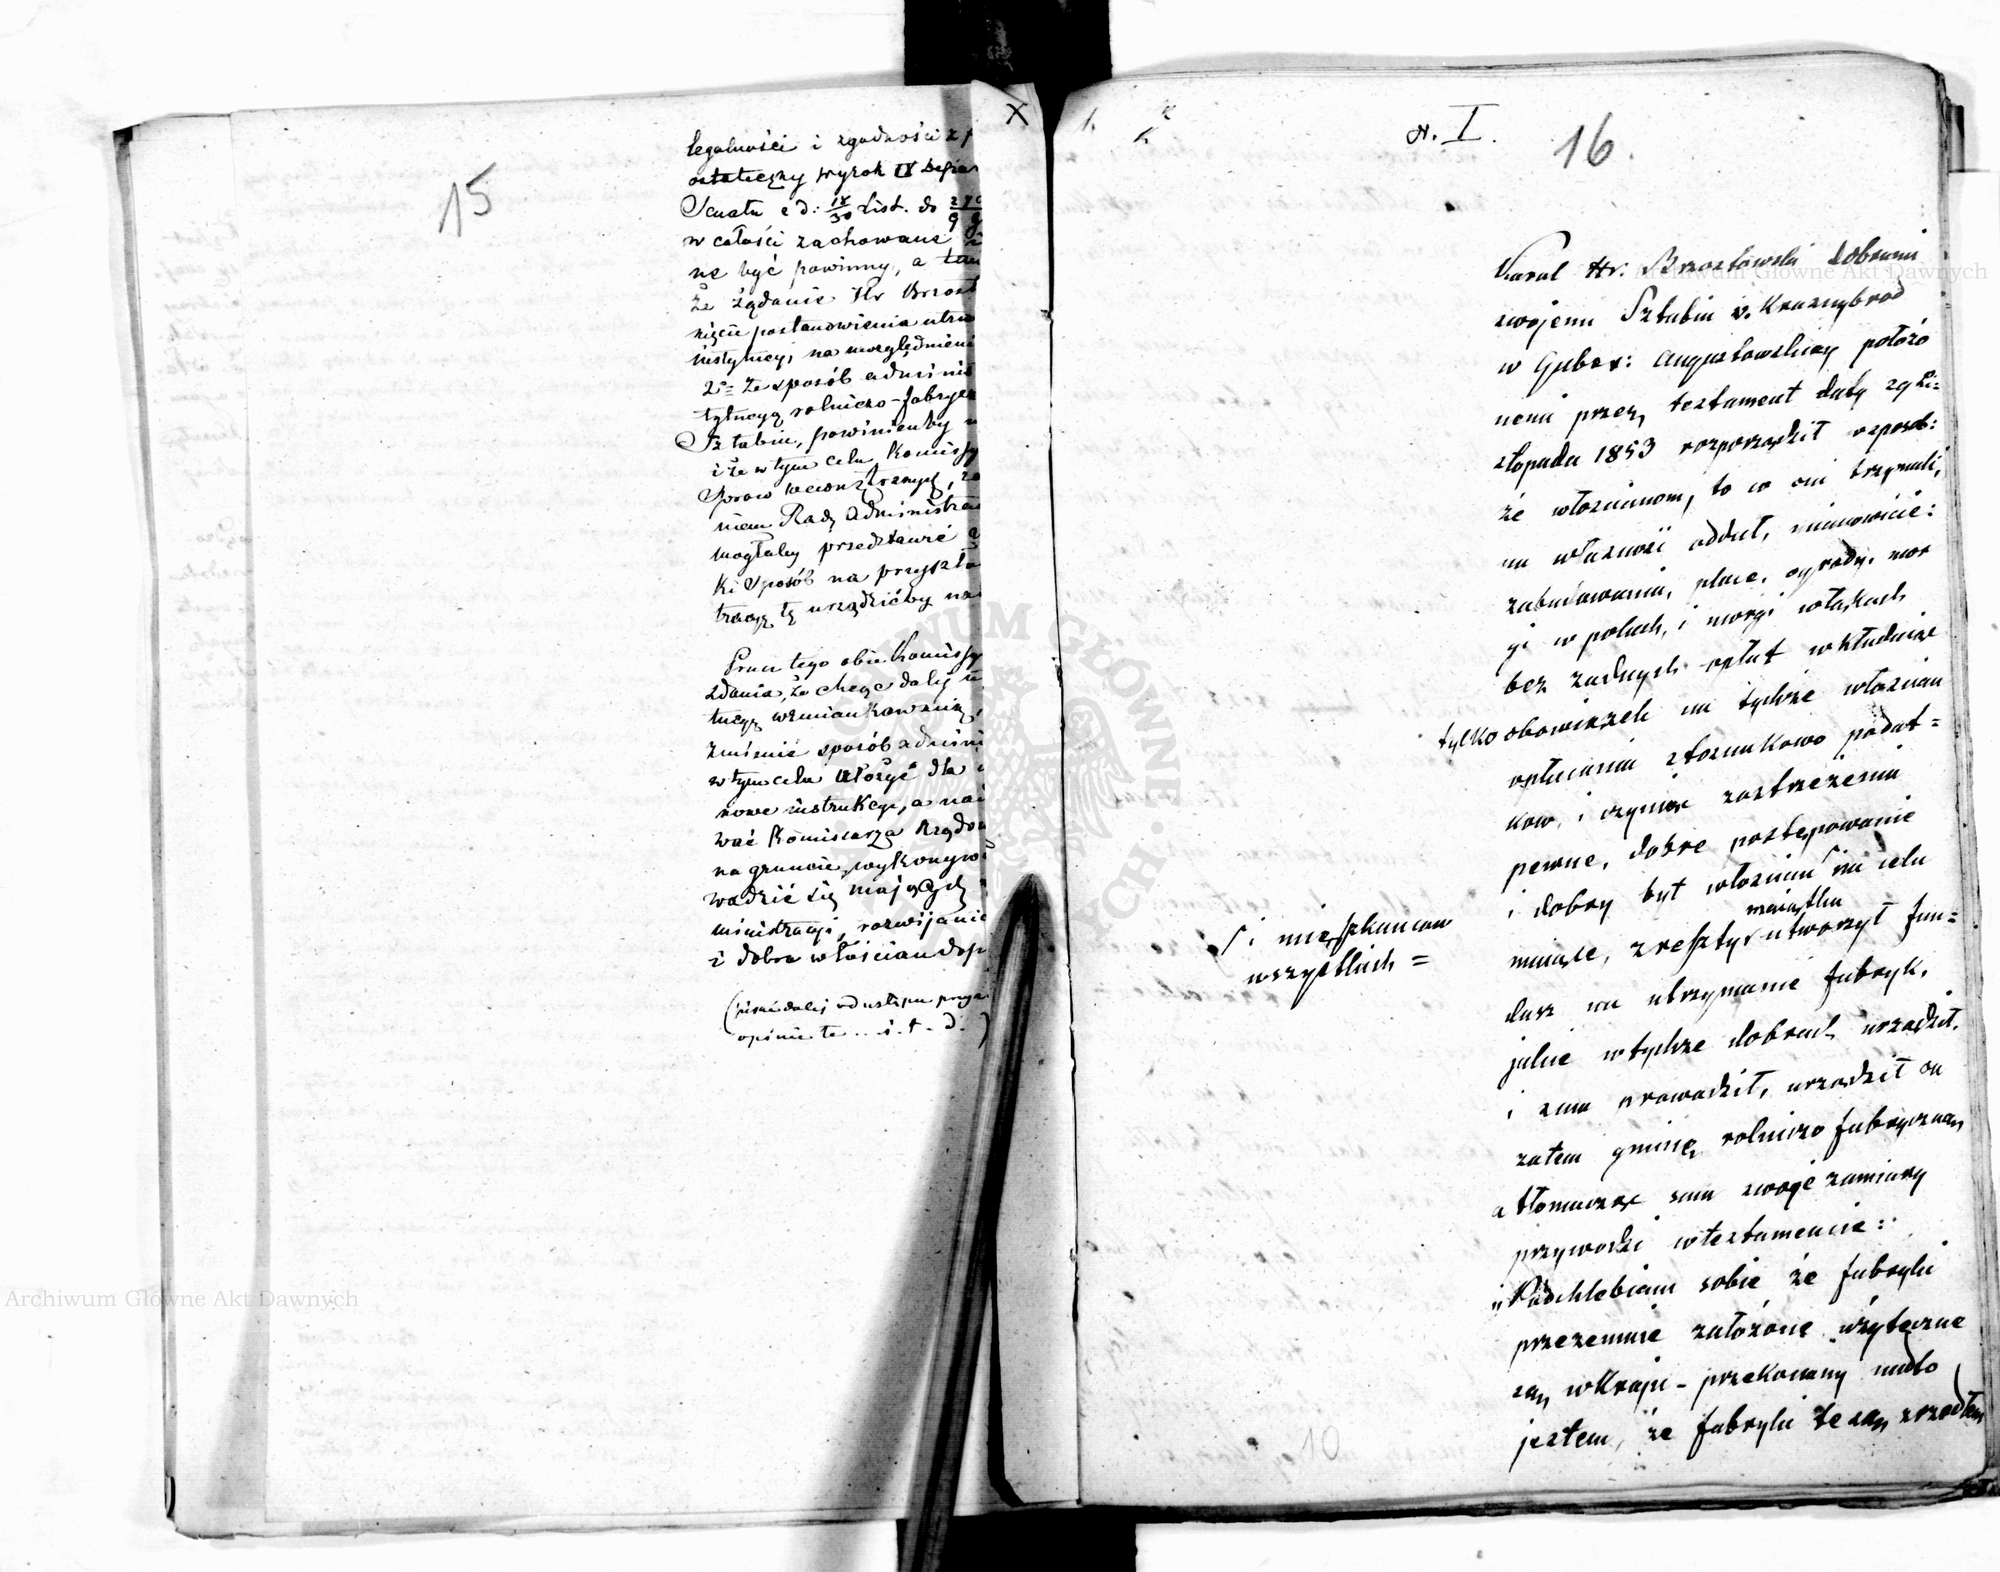 15
X
legalności i zgodności z
ostateczny wyrok IX
Senatu z d: 18/30 List. do
w całości zachowane
ne być powinny, a tem
że żądanie Hr Brzost
nięcia postanowienia utrw
instytucyi na uwzględnieni
2e że sposób adminis
tytucyą rolniczo-fabrycz
Sztabin, powinienby
i że w tym celu Kommissy
Spraw wewnętrznych, za
niem Rady Administrac
mogłaby przedstawić
ki sposób na przyszło
tracyę tę urządzićby na
Prócz tego obie Kommissy
zdania, że chcąc dalej
tucyę wzmiankowaną,
zmienić sposób admini
w tym celu ułożyć dla
nowe instrukcye, a
wać Komissarza Rządow
na gruncie, wykonyw
wadzić się mających
ministracyi, rozwijanie
i dobra włościan dop
(pisać dalej od ustępu
opinie te ... i. t. d. )
1.
N. I.
16.
Karol Hr. Brzostowski dobrami
swojemi Sztabin v. Krasnybród
w Guber: Augustowskiey położo
nemi przez testament datą 29 Li=
stopada 1853 rozporządził w sposób:
że włościanom, to co oni trzymali,
na własność oddał, mianowicie:
zabudowania, place, ogrody, mor
gi w polach, i morgi w łąkach
bez żadnych opłat wkładając
tylko obowiązek na tychże włościan
opłacania stosunkowo podat=
ków, i czyniąc zastrzeżenia
pewne, dobre postępowanie
i dobry byt włościan na celu
i mieszkańców
wszystkich =
majątku
mające, z reszty utworzył fun=
dusz na utrzymanie fabryk,
jakie w tychże dobrach urządził,
i sam prowadził, urządził on
zatem gminę rolniczo fabryczną
a tłomacząc sam swoje zamiary
przywodzi w testamencie:
„Pochlebiam sobie że fabryki
przezemnie założone użyteczne
są w Kraju - przekonany nadto
jestem, że fabryki te są źrzódłem
10
Archiwum Główne Akt Dawnych
Archiwum Główne Akt Dawnych
ARCHIWUM GŁÓWNE AKT DAWNYCH